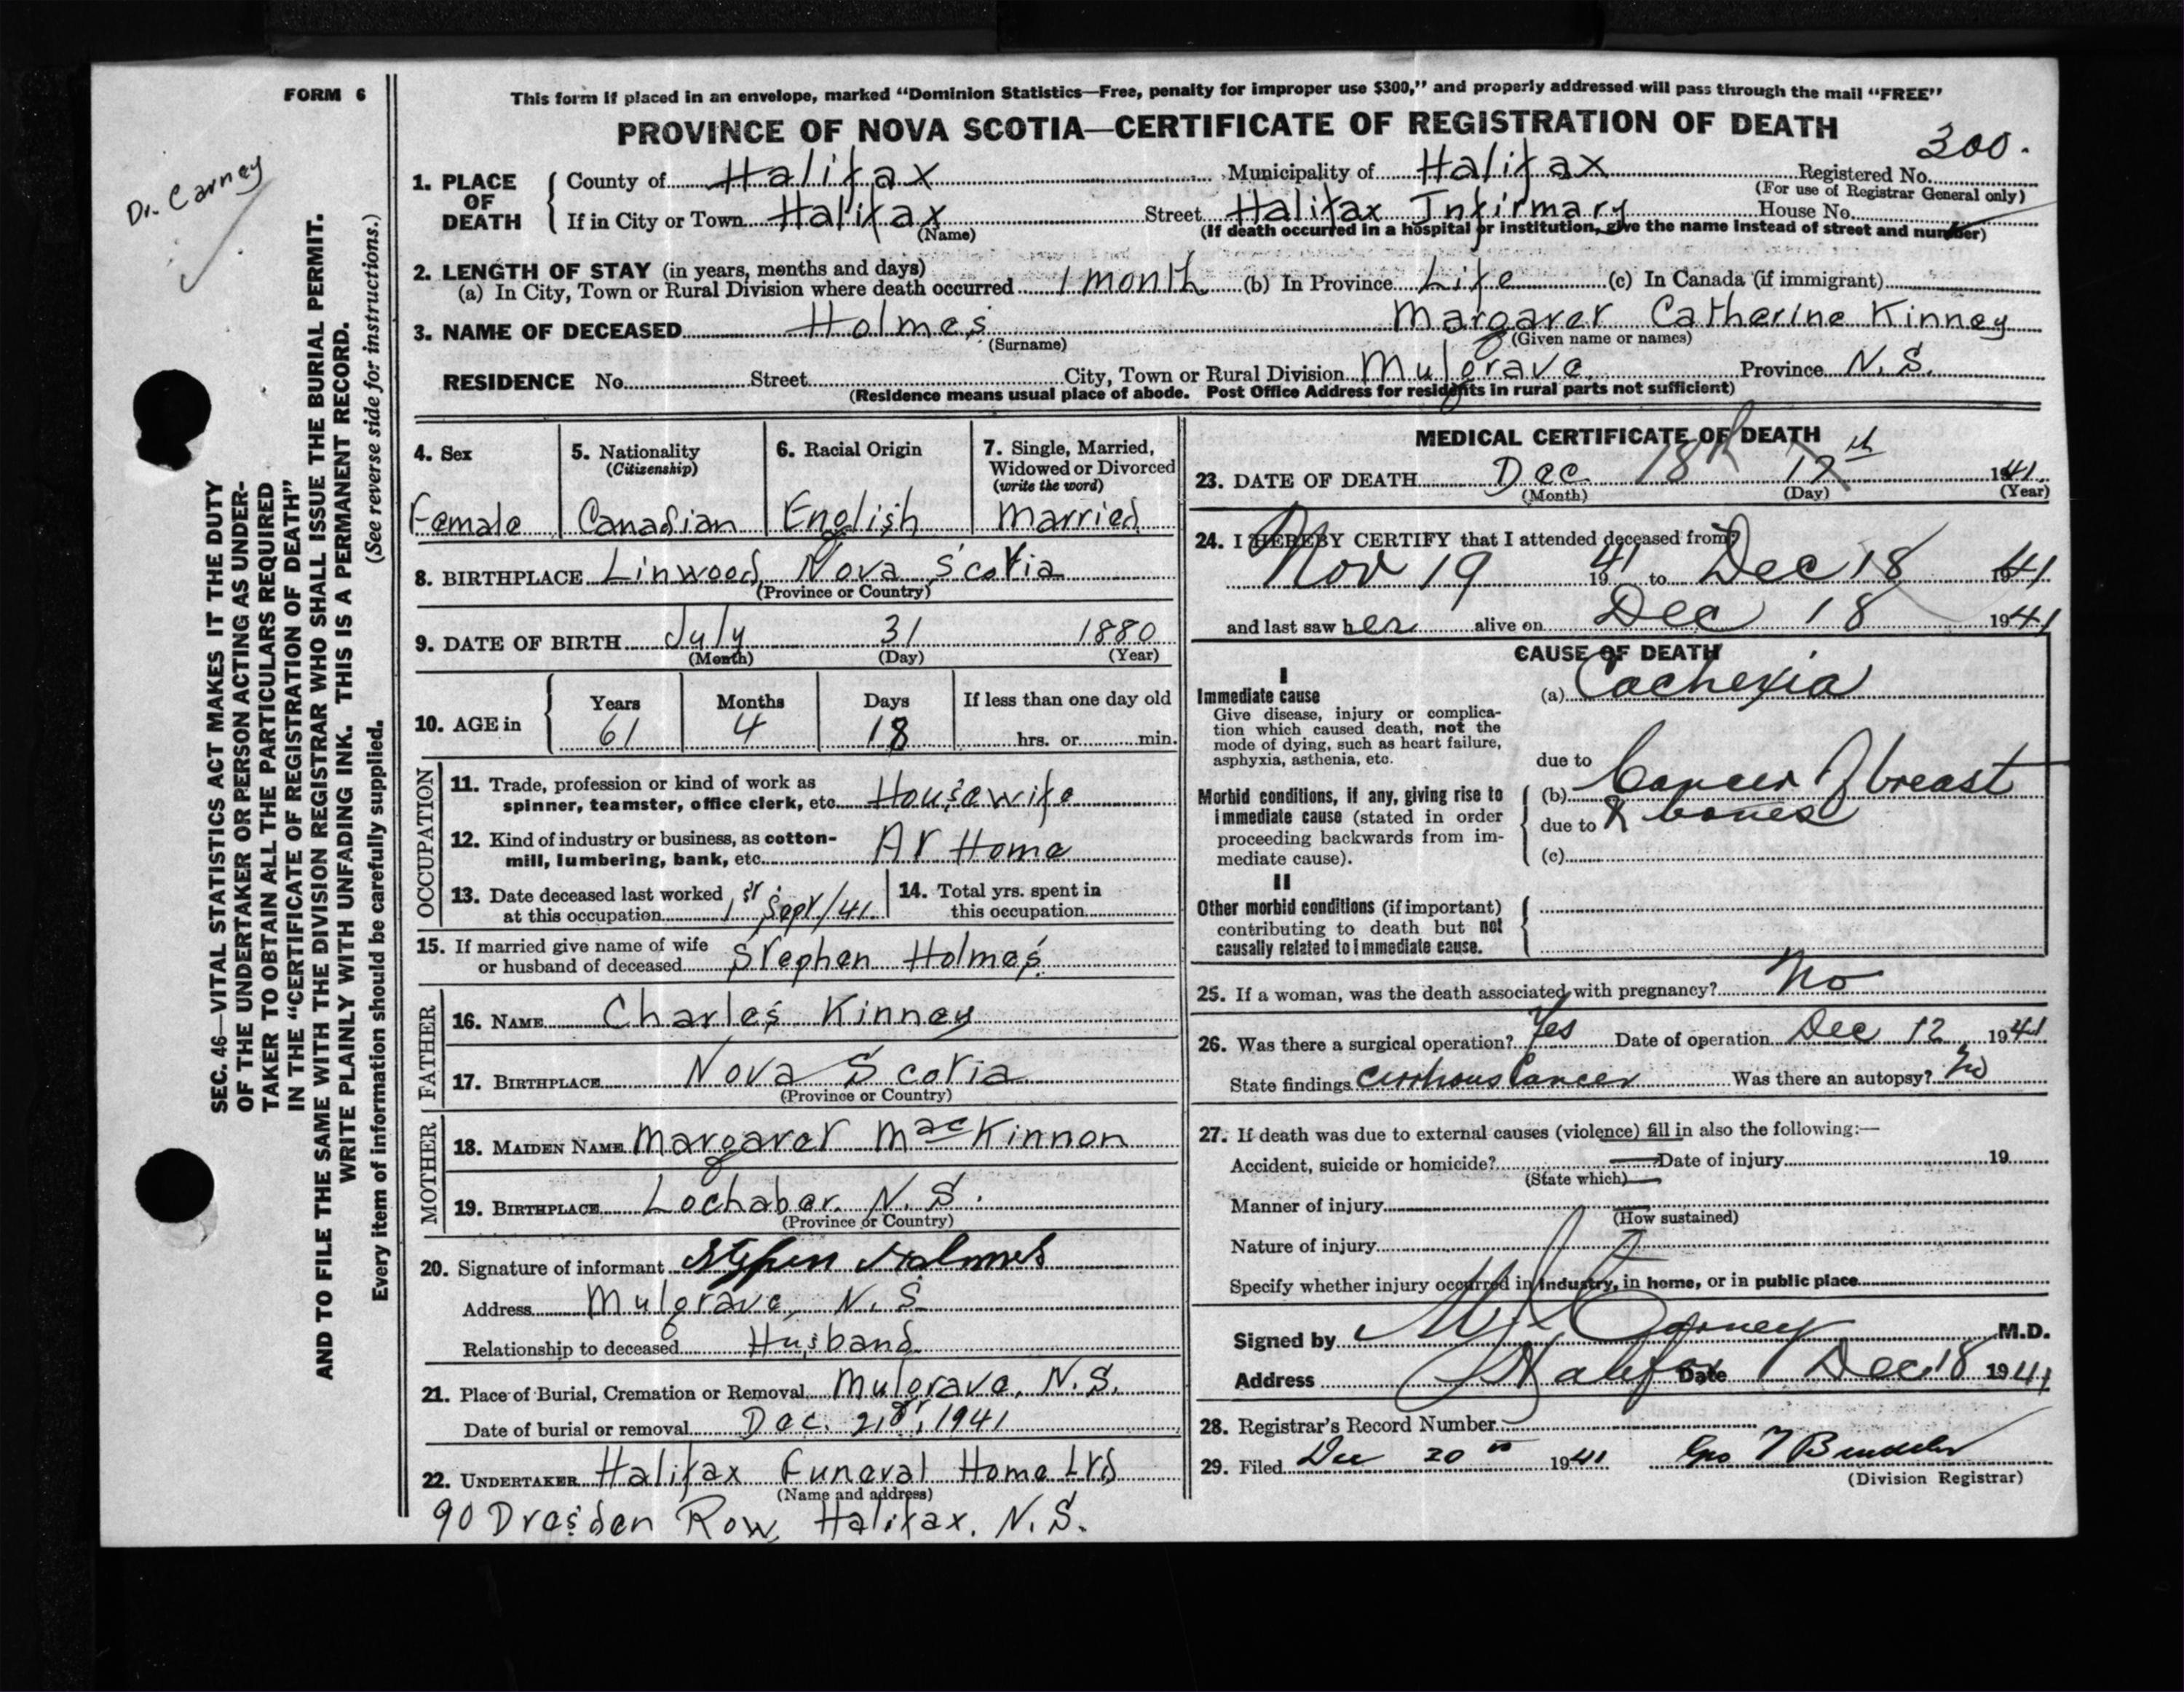 FORM 6
Dr. Carney
SEC. 46—VITAL STATISTICS ACT MAKES IT THE DUTY
OF THE UNDERTAKER OR PERSON ACTING AS UNDER-
TAKER TO OBTAIN ALL THE PARTICULARS REQUIRED
IN THE "CERTIFICATE OF REGISTRATION OF DEATH"
AND TO FILE THE SAME WITH THE DIVISION REGISTRAR WHO SHALL ISSUE THE BURIAL PERMIT.
WRITE PLAINLY WITH UNFADING INK. THIS IS A PERMANENT RECORD.
Every item of information should be carefully supplied. (See reverse side for instructions.)
This form if placed in an envelope, marked "Dominion Statistics—Free, penalty for improper use $300," and properly addressed will pass through the mail "FREE"
PROVINCE OF NOVA SCOTIA—CERTIFICATE OF REGISTRATION OF DEATH
300.
1. PLACE OF DEATH County of Halifax Municipality of Halifax Registered No.
(For use of Registrar General only)
If in City or Town Halifax Street Halifax Infirmary House No.
(Name) (If death occurred in a hospital or institution, give the name instead of street and number)
2. LENGTH OF STAY (in years, months and days)
(a) In City, Town or Rural Division where death occurred 1 month (b) In Province Life (c) In Canada (if immigrant)
3. NAME OF DECEASED Holmes Margaret Catherine Kinney
(Surname) (Given name or names)
RESIDENCE No. Street City, Town or Rural Division Mulgrave Province N.S.
(Residence means usual place of abode. Post Office Address for residents in rural parts not sufficient)
4. Sex
Female
5. Nationality
(Citizenship)
Canadian
6. Racial Origin
English
7. Single, Married,
Widowed or Divorced
(write the word)
Married
8. BIRTHPLACE Linwood, Nova Scotia
(Province or Country)
9. DATE OF BIRTH July 31 1880
(Month) (Day) (Year)
10. AGE in Years Months Days If less than one day old
61 4 18 hrs. or min.
OCCUPATION
11. Trade, profession or kind of work as
spinner, teamster, office clerk, etc. Housewife
12. Kind of industry or business, as cotton-
mill, lumbering, bank, etc. At Home
13. Date deceased last worked
at this occupation 1st Sept/41
14. Total yrs. spent in
this occupation
15. If married give name of wife
or husband of deceased Stephen Holmes
FATHER
16. NAME Charles Kinney
17. BIRTHPLACE Nova Scotia
(Province or Country)
MOTHER
18. MAIDEN NAME Margaret MacKinnon
19. BIRTHPLACE Lochaber, N.S.
(Province or Country)
20. Signature of informant Stephen Holmes
Address Mulgrave, N.S.
Relationship to deceased Husband
21. Place of Burial, Cremation or Removal Mulgrave, N.S.
Date of burial or removal Dec. 21st, 1941
22. UNDERTAKER Halifax Funeral Home Ltd
(Name and address)
90 Dresden Row, Halifax, N.S.
MEDICAL CERTIFICATE OF DEATH
23. DATE OF DEATH Dec 18th 17th 1941
(Month) (Day) (Year)
24. I HEREBY CERTIFY that I attended deceased from:
Nov 19 1941 to Dec 18 1941
and last saw her alive on Dec 18 1941
CAUSE OF DEATH
I
Immediate cause
Give disease, injury or complica-
tion which caused death, not the
mode of dying, such as heart failure,
asphyxia, asthenia, etc.
(a) Cachexia
due to
Morbid conditions, if any, giving rise to
immediate cause (stated in order
proceeding backwards from im-
mediate cause).
(b) Cancer of breast
due to & bones
(c)
II
Other morbid conditions (if important)
contributing to death but not
causally related to immediate cause.
25. If a woman, was the death associated with pregnancy? No
26. Was there a surgical operation? Yes Date of operation Dec 12 1941
State findings Cancer Was there an autopsy? No
27. If death was due to external causes (violence) fill in also the following:—
Accident, suicide or homicide? Date of injury 19
(State which)
Manner of injury
(How sustained)
Nature of injury
Specify whether injury occurred in industry, in home, or in public place
Signed by Carney M.D.
Address Halifax Date Dec 18 1941
28. Registrar's Record Number
29. Filed Dec 20th 1941
(Division Registrar)